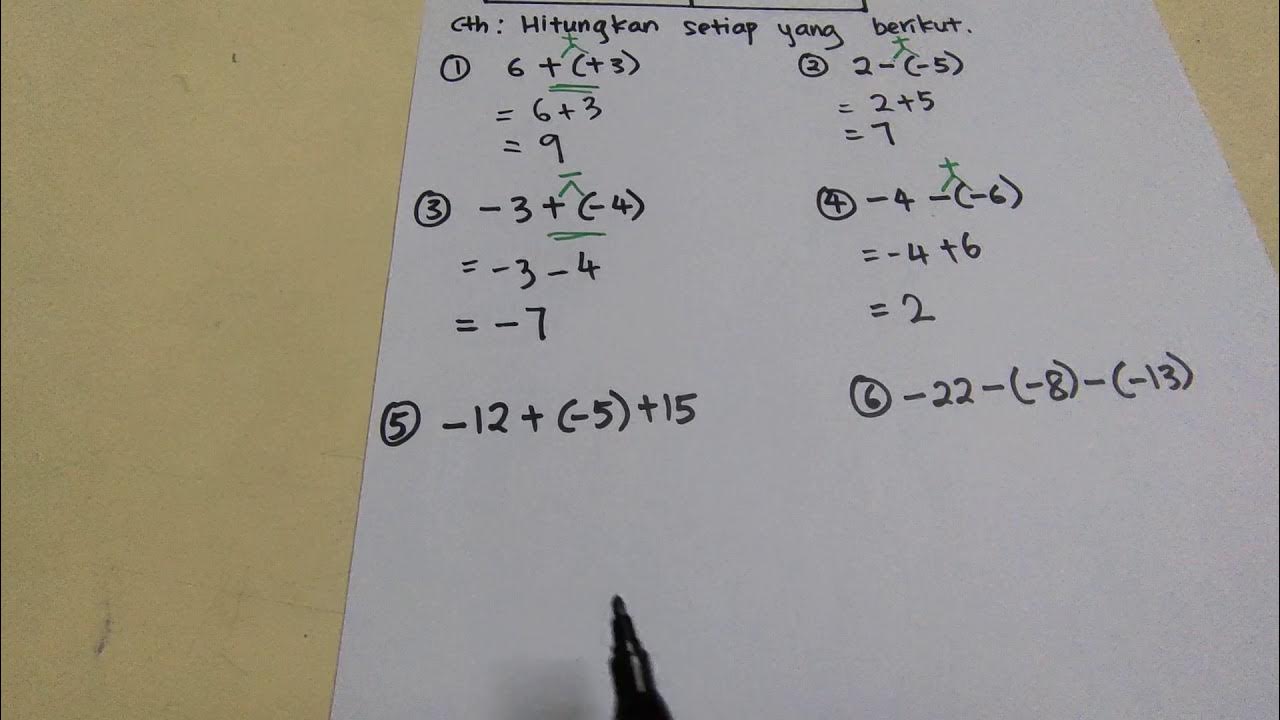 cth: Hitungkan setiap yang berikut.
① 6 + (+3)
+
= 6+3
= 9
② 2 - (-5)
+
= 2+5
= 7
③ -3 + (-4)
-
= -3 - 4
= -7
④ -4 - (-6)
+
= -4 + 6
= 2
⑤ -12 + (-5) + 15
⑥ -22 - (-8) - (-13)